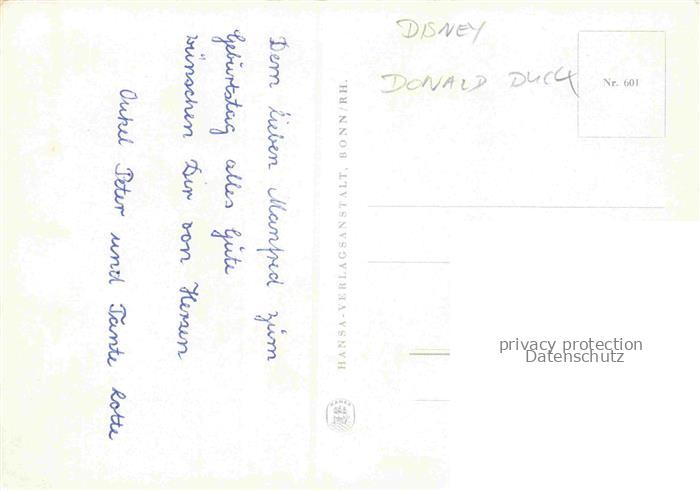 Dem lieben Manfred zum
Geburtstag alles Gute
wünschen Dir von Herzen
Onkel Peter und Tante Lotte
HANSA-VERLAGSANSTALT, BONN/RH.
DISNEY
DONALD DUCK
Nr. 601
privacy protection
Datenschutz